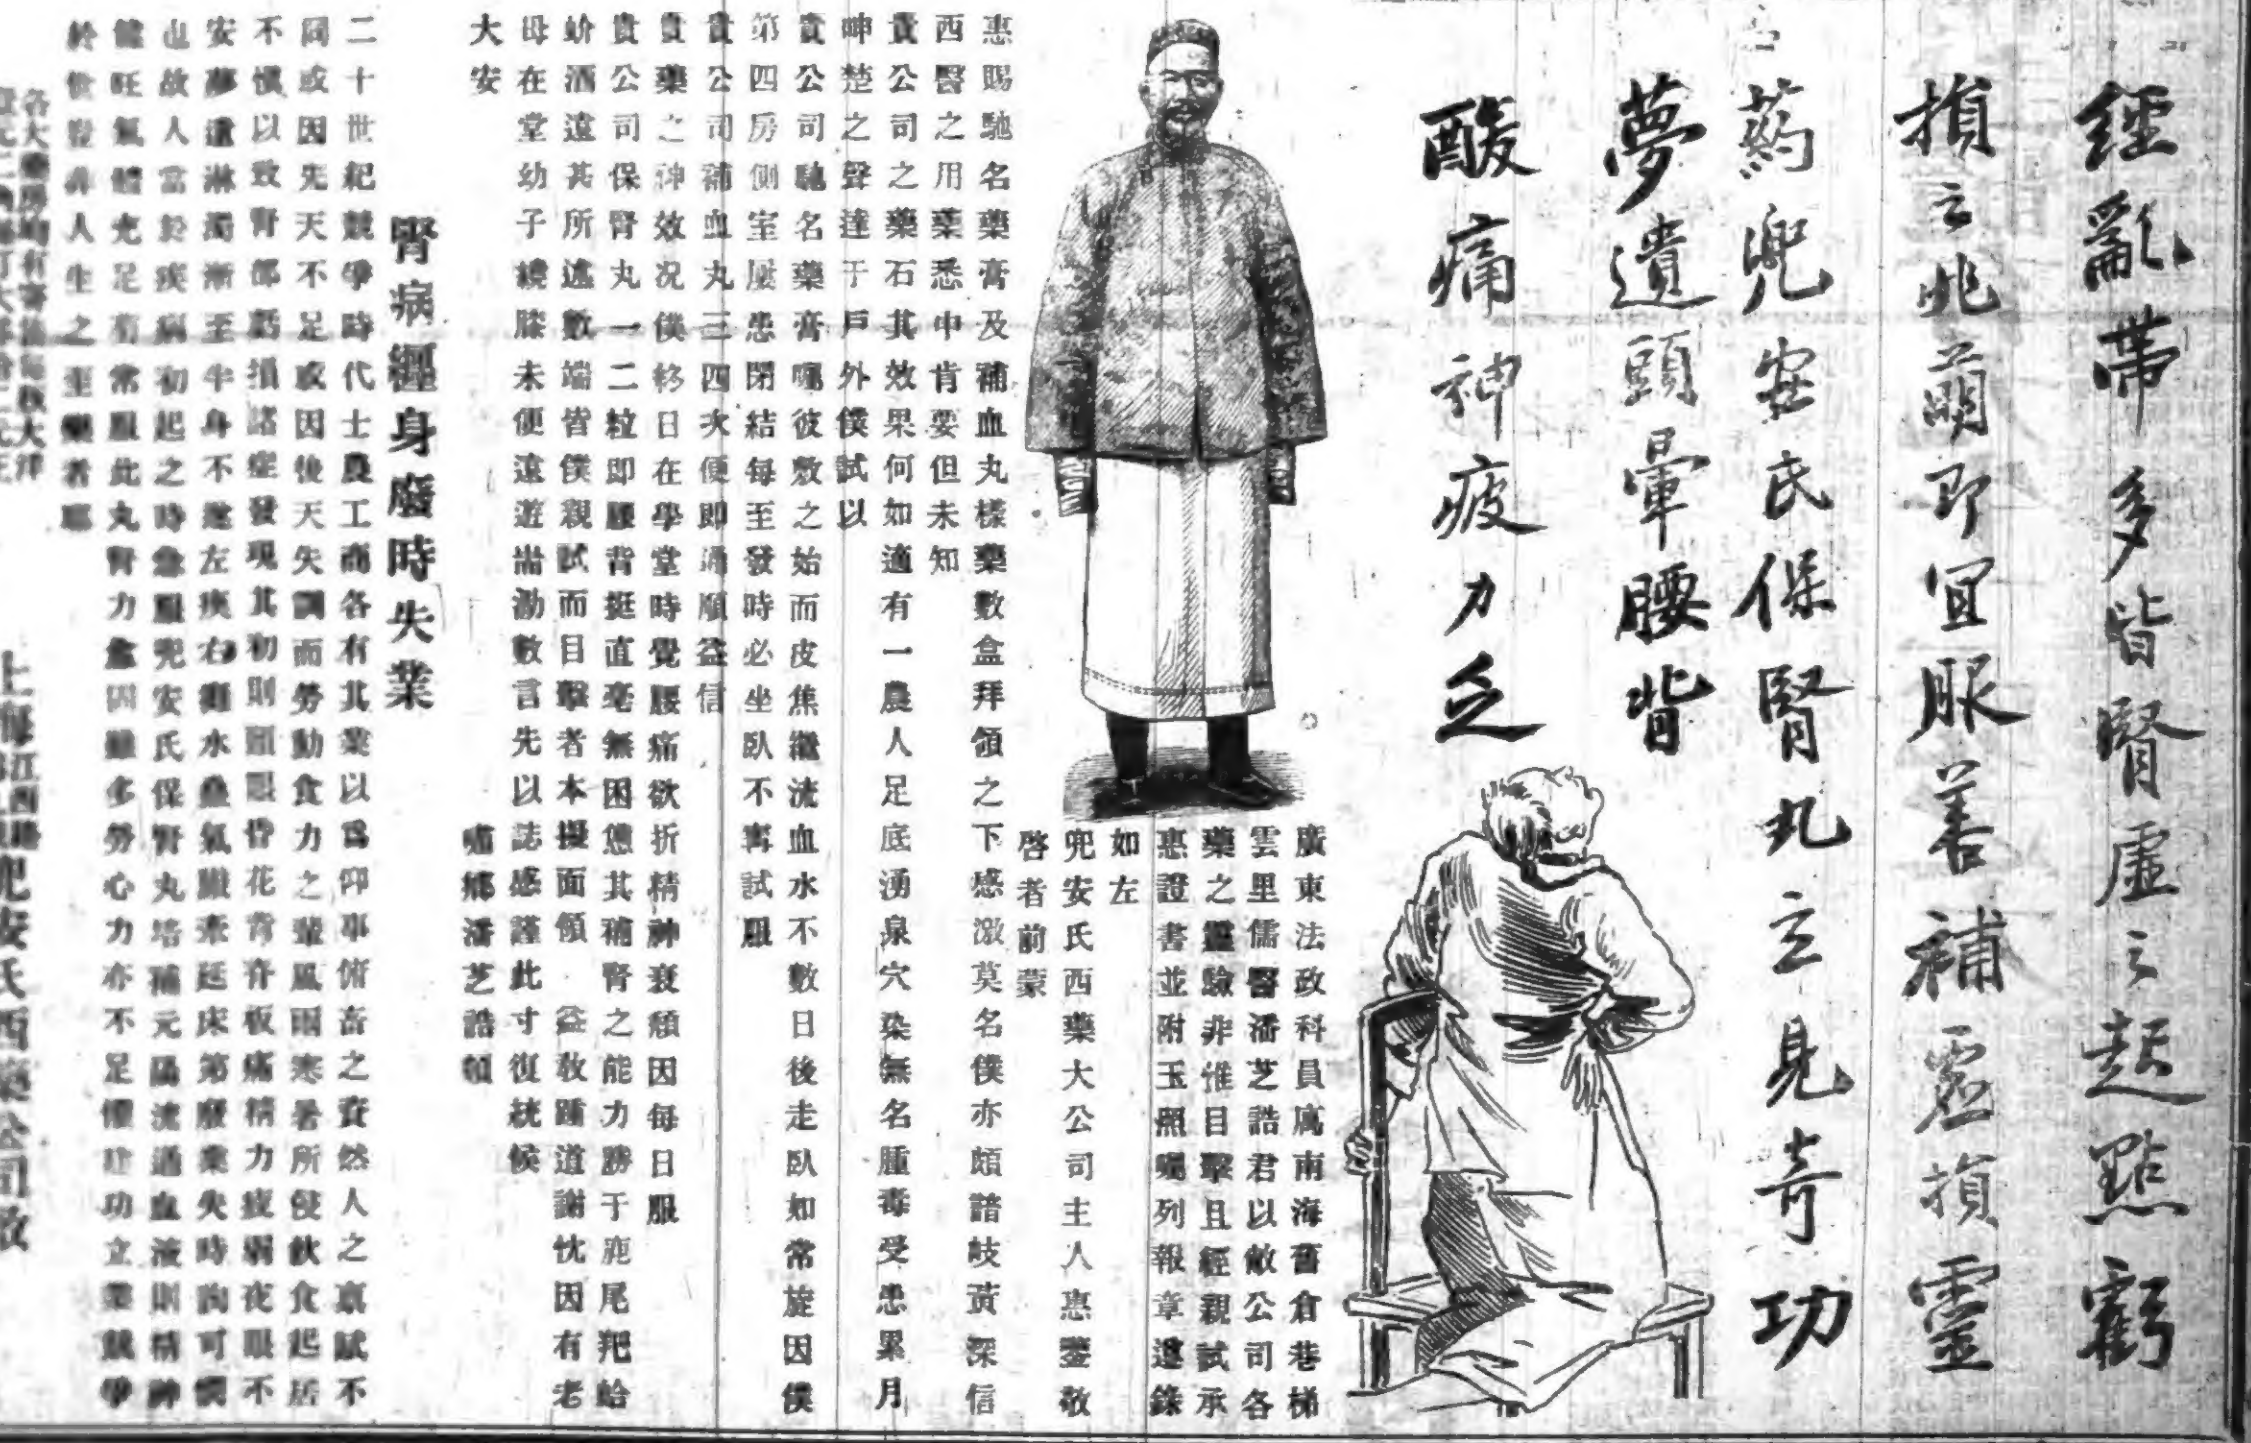 經亂帶多皆腎虛之起點虧
損之兆萌即宜服善補虛損靈
葯兜安氏保腎丸立見奇功
夢遺頭暈腰背
酸痛神疲力乏
廣東法政科員寓南海舊倉巷梯
雲里儒醫潘芝誥君以敝公司各
藥之靈驗非惟目擊且經親試承
惠證書並附玉照囑列報章遂錄
如左
兜安氏西藥大公司主人惠鑒敬
啓者前蒙
惠賜馳名藥膏及補血丸樣藥數盒拜領之下感激莫名僕亦頗諳岐黃深信
西醫之用藥悉中肯要但未知
貴公司之藥石其效果何如適有一農人足底湧泉穴染無名腫毒受患累月
呻楚之聲達于戶外僕試以
貴公司馳名藥膏囑彼敷之始而皮焦繼流血水不數日後走臥如常旋因僕
第四房側室屢患閉結每至發時必坐臥不寗試服
貴公司補血丸三四次便即通順益信
貴藥之神效況僕終日在學堂時覺腰痛欲折精神衰頹因每日服
貴公司保腎丸一二粒即腰背挺直毫無困憊其補腎之能力勝于鹿尾羓蛤
蚧酒遠甚所述數端皆僕親試而目擊者本擬面領 益敎踵道謝忱因有老
母在堂幼子繞膝未便遠遊耑泐數言先以誌感謹此寸復統候
大安
南鄉潘芝誥頓
腎病纏身廢時失業
二十世紀競爭時代士農工商各有其業以爲仰事俯畜之資然人之稟賦不
同或因先天不足或因後天失調而勞動食力之輩風雨寒暑所侵飲食起居
不愼以致腎部虧損諸症發現其初則頭眼昏花背脊板痛精力疲弱夜眠不
安夢遺淋濁漸至半身不遂左瘓右癱水蠱氣臌牽延床第廢業失時洵可憫
也故人當於疾病初起之時急服兜安氏保腎丸培補元陽流通血液則精神
健旺氣體充足有常服此丸腎力愈固雖多勞心力亦不足懼建功立業競爭
於世豈非人生之至樂者耶
各大藥房均有
上海江西路兜安氏西藥公司啟